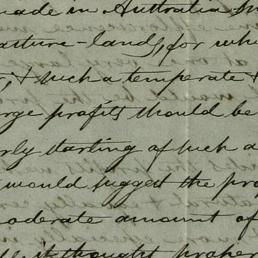 made in Australia
asture-land, for whi
& such a temperate &
rge profits should be
rly starting of such a
would suggest the pro
oderate amount of
it thought proper